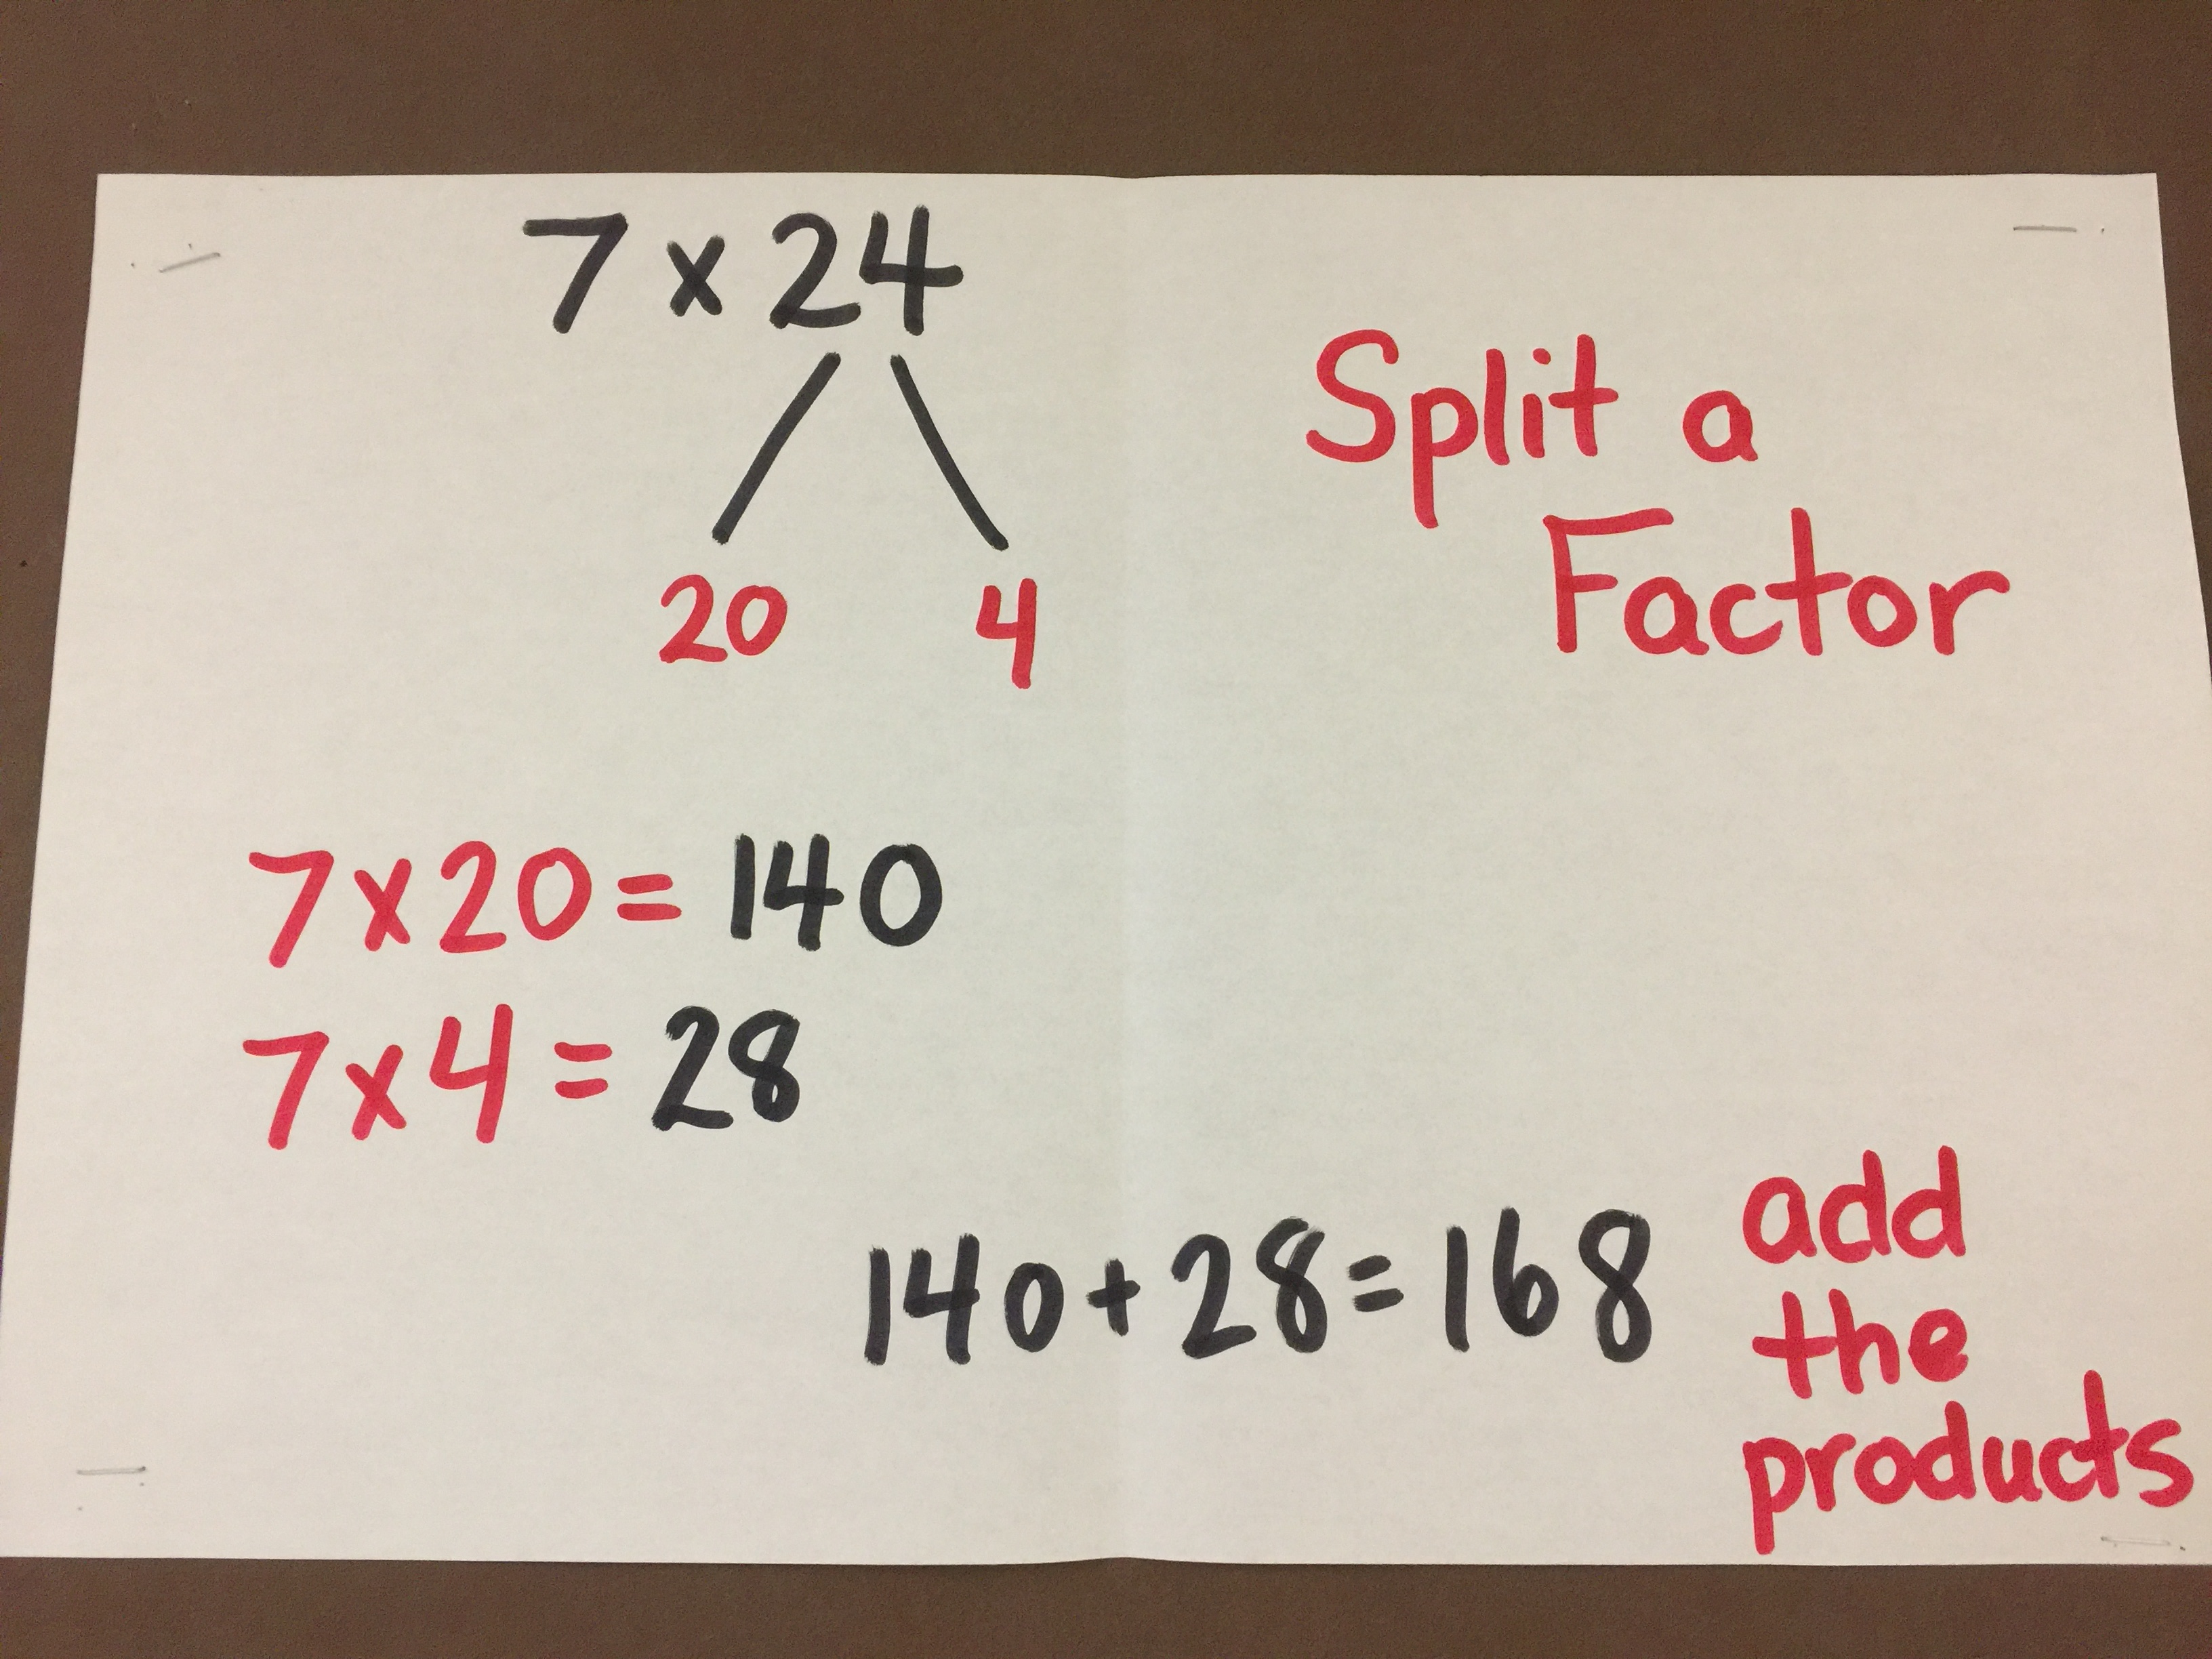 7 x 24
Split a
Factor
20 4
7 x 20 = 140
7 x 4 = 28
140 + 28 = 168
add
the
products